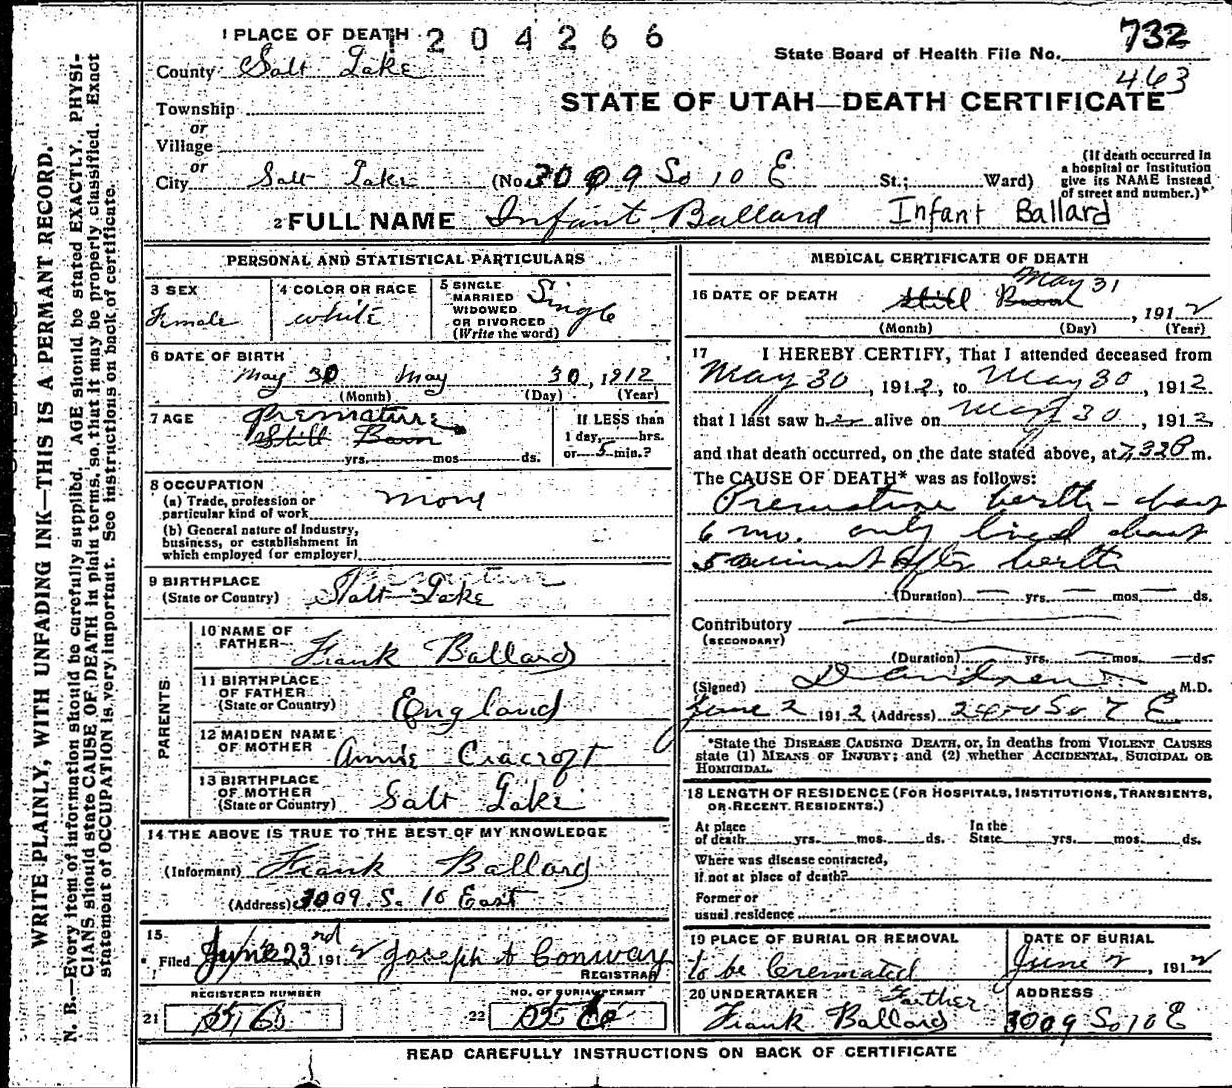 WRITE PLAINLY, WITH UNFADING INK—THIS IS A PERMANT RECORD.
N. B.—Every item of information should be carefully supplied. AGE should be stated EXACTLY. PHYSI-
CIANS should state CAUSE OF DEATH in plain terms, so that it may be properly classified. Exact
statement of OCCUPATION is very important. See instructions on back of certificate.
1 PLACE OF DEATH 204266
State Board of Health File No. 732
463
County Salt Lake
STATE OF UTAH—DEATH CERTIFICATE
Township
or
Village
or
City Salt Lake (No. 3009 So 10 E St.; Ward)
(If death occurred in
a hospital or institution
give its NAME instead
of street and number.)
2 FULL NAME Infant Ballard Infant Ballard
PERSONAL AND STATISTICAL PARTICULARS
3 SEX
Female
4 COLOR OR RACE
white
5 SINGLE
MARRIED
WIDOWED
OR DIVORCED
(Write the word)
Single
6 DATE OF BIRTH
May 30 May 30, 1912
(Month) (Day) (Year)
7 AGE
Premature
Still Born
yrs. mos ds.
If LESS than
1 day, hrs.
or 5 min.?
8 OCCUPATION
(a) Trade, profession or
particular kind of work
(b) General nature of industry,
business, or establishment in
which employed (or employer)
9 BIRTHPLACE
(State or Country) Salt Lake
PARENTS
10 NAME OF
FATHER Frank Ballard
11 BIRTHPLACE
OF FATHER
(State or Country) England
12 MAIDEN NAME
OF MOTHER Annie Cracroft
13 BIRTHPLACE
OF MOTHER
(State or Country) Salt Lake
14 THE ABOVE IS TRUE TO THE BEST OF MY KNOWLEDGE
(Informant) Frank Ballard
(Address) 3009 So 10 East
15
Filed June 23rd 1912 Joseph A Conway
REGISTRAR
REGISTERED NUMBER
21
NO. OF BURIAL PERMIT
22
MEDICAL CERTIFICATE OF DEATH
16 DATE OF DEATH May 31
Still Born, 1912
(Month) (Day) (Year)
17 I HEREBY CERTIFY, That I attended deceased from
May 30, 1912, to May 30, 1912
that I last saw her alive on May 30, 1912
and that death occurred, on the date stated above, at m.
The CAUSE OF DEATH* was as follows:
Premature berth
6 mo. only lived about
5 after berth
(Duration) yrs. mos. ds.
Contributory
(SECONDARY)
(Duration) yrs. mos. ds.
(Signed) M.D.
June 2 1912 (Address) So 7 E
*State the DISEASE CAUSING DEATH, or, in deaths from VIOLENT CAUSES
state (1) MEANS OF INJURY; and (2) whether ACCIDENTAL, SUICIDAL OR
HOMICIDAL.
18 LENGTH OF RESIDENCE (FOR HOSPITALS, INSTITUTIONS, TRANSIENTS,
OR RECENT RESIDENTS.)
At place
of death yrs. mos. ds.
In the
State yrs. mos. ds.
Where was disease contracted,
if not at place of death?
Former or
usual residence
19 PLACE OF BURIAL OR REMOVAL
to be Cremated
DATE OF BURIAL
June 2, 1912
20 UNDERTAKER Farther
Frank Ballard
ADDRESS
3009 So 10 E
READ CAREFULLY INSTRUCTIONS ON BACK OF CERTIFICATE